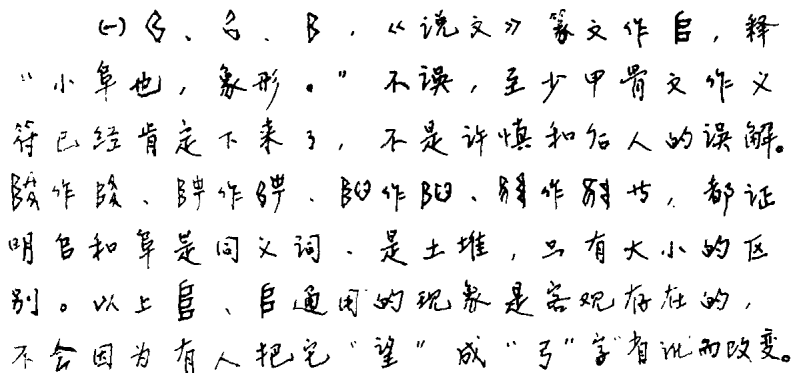 (一) 、 、 ,《说文》篆文作𠂤,释
“小阜也,象形。”不误,至少甲骨文作义
符已经肯定下来了,不是许慎和后人的误解。
作 、 作 、 作 、 作 等,都证
明𠂤和阜是同义词、是土堆,只有大小的区
别。以上 、𠂤通用的现象是客观存在的,
不会因为有人把它“望”成“弓”字有说而改变。